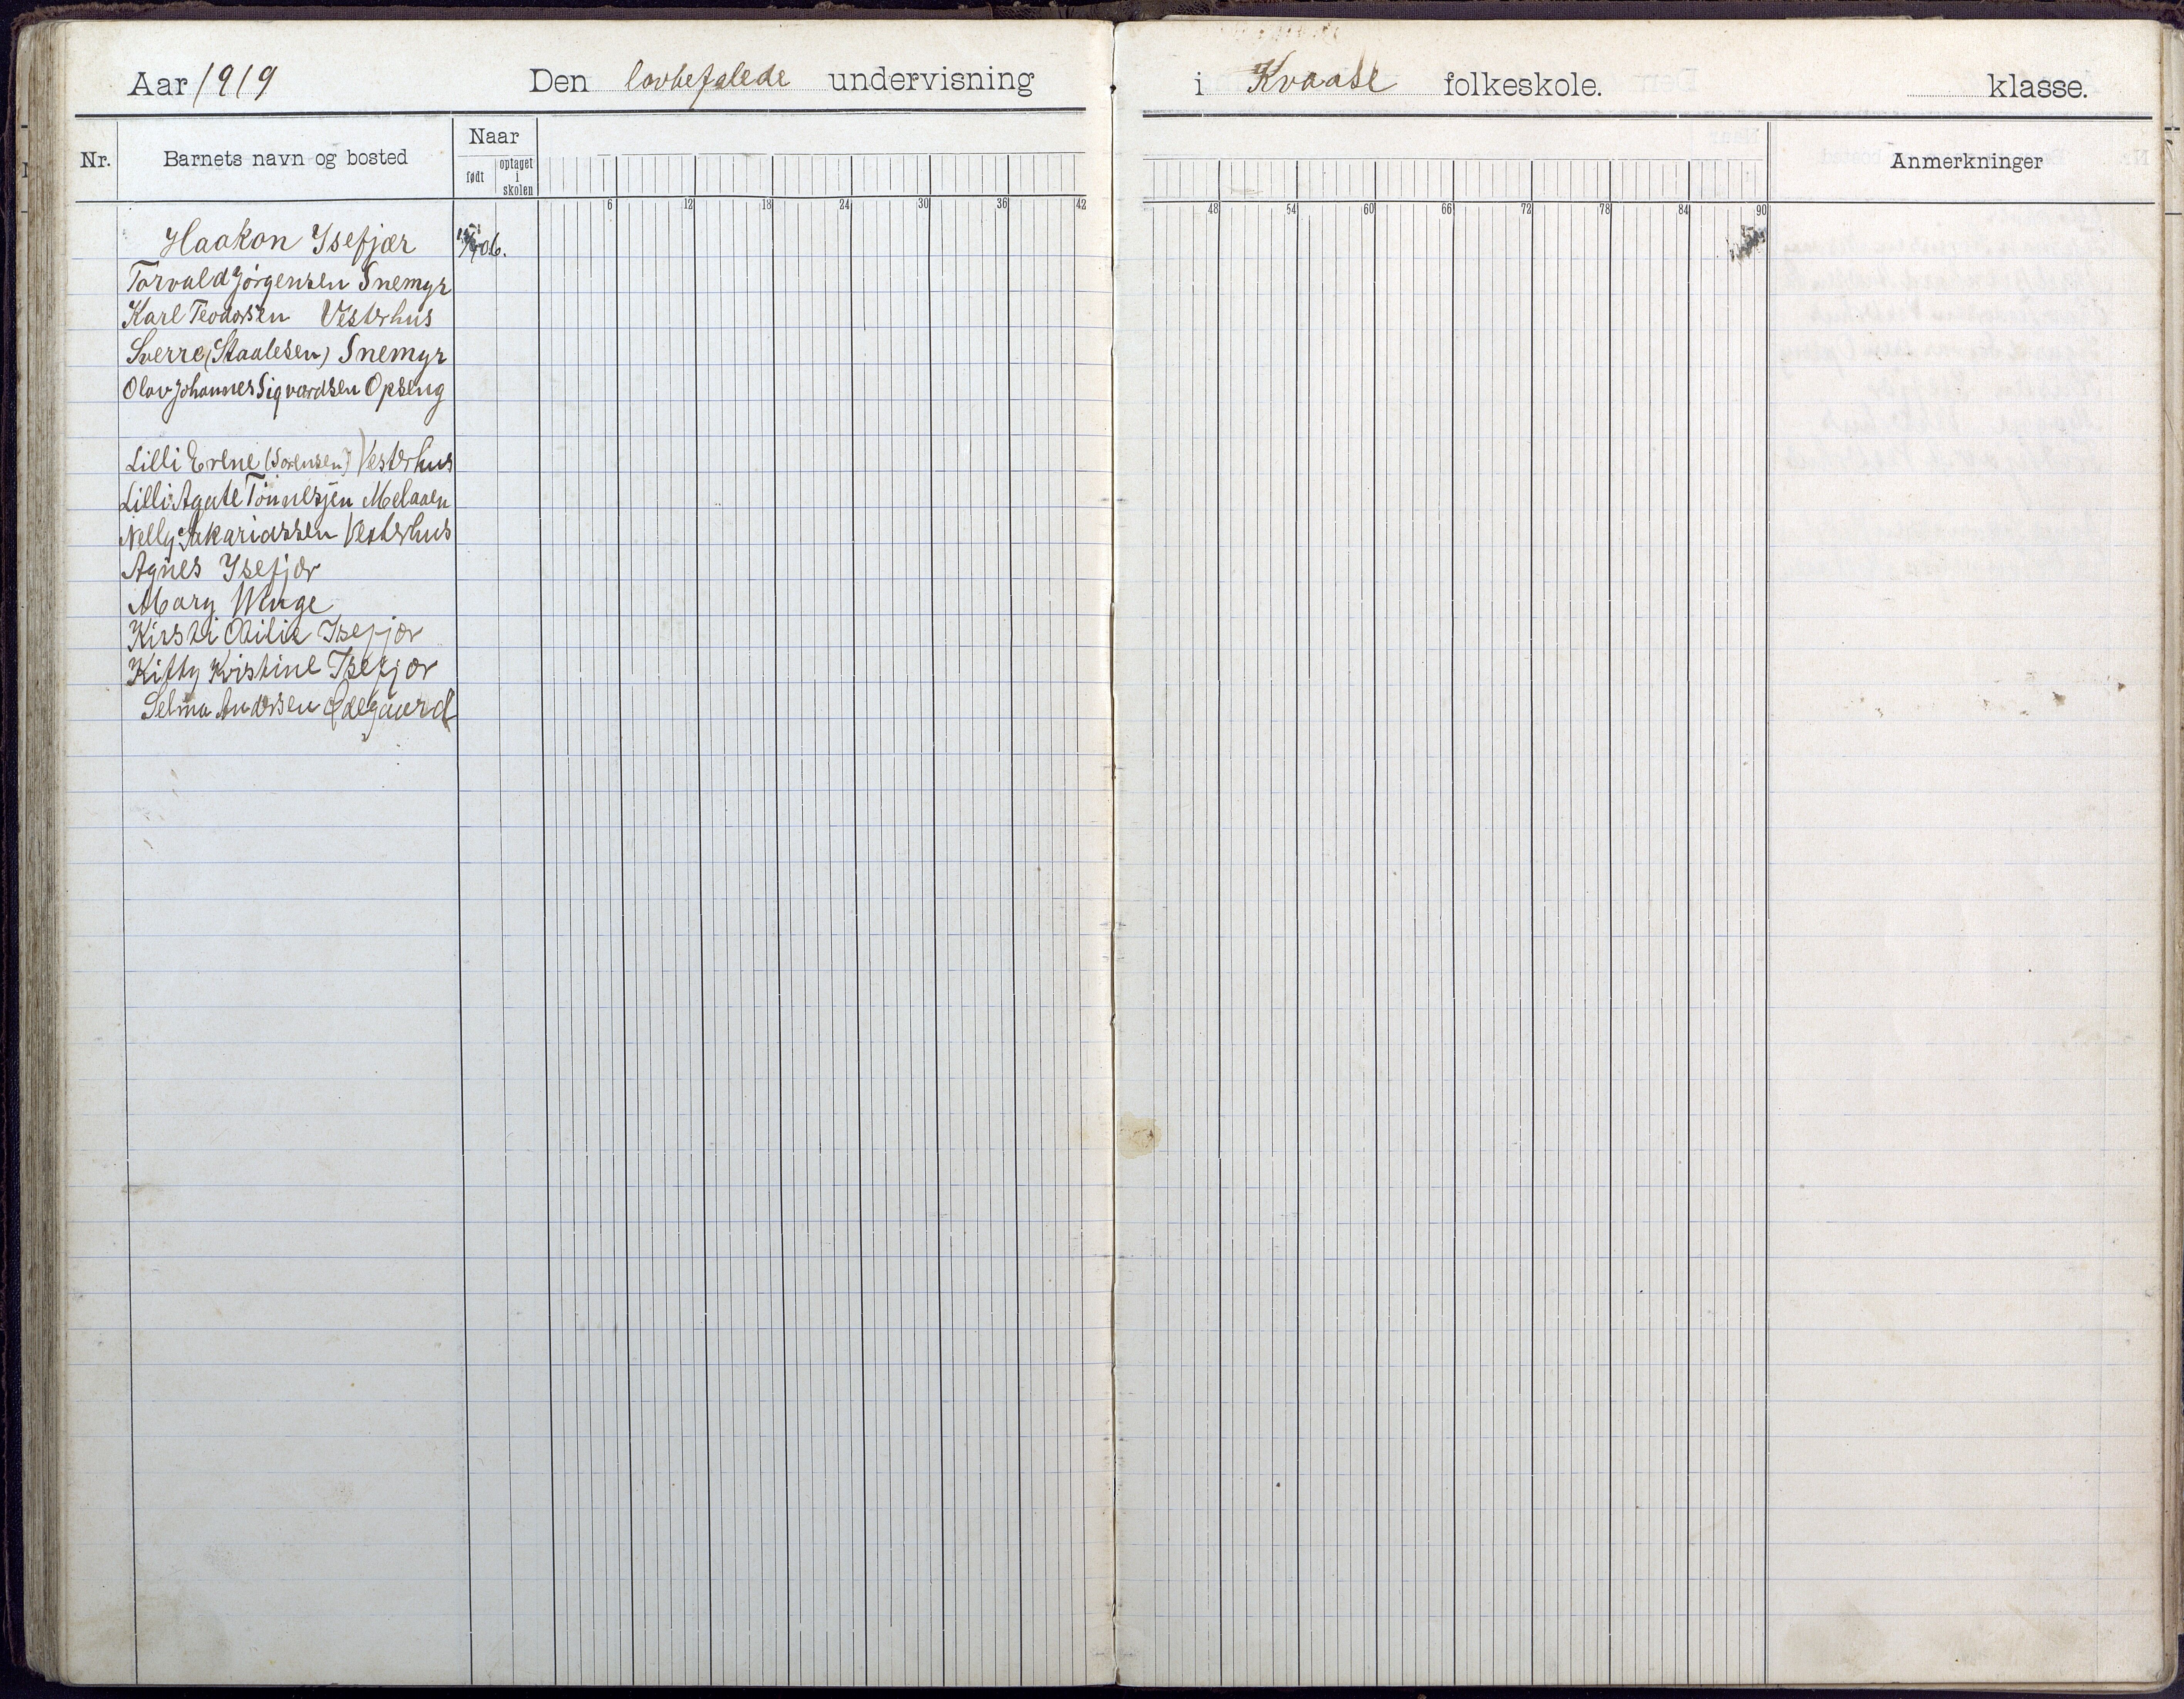 Aar 1919 Den lovbefalede undervisning i Kvaase folkeskole. klasse.
Nr. Barnets navn og bosted Naar født optaget i skolen Anmerkninger
6 12 18 24 30 36 42 48 54 60 66 72 78 84 90
Haakon Ysefjær 06.
Torvald Jørgensen Snemyr
Karl Teodorsen Vesterhus
Sverre (Staalesen) Snemyr
Olav Johannes Sigvardsen Opseng
Lilli Erene (Sørensen) Vesterhus
Lilli Agate Tønnesjen Melaaen
Nelly Sakariassen Vesterhus
Agnes Ysefjær
Mary Winge
Kirsti Otilie Isefjær
Kitty Kristine Isefjær
Selma Andersen Ødegaard